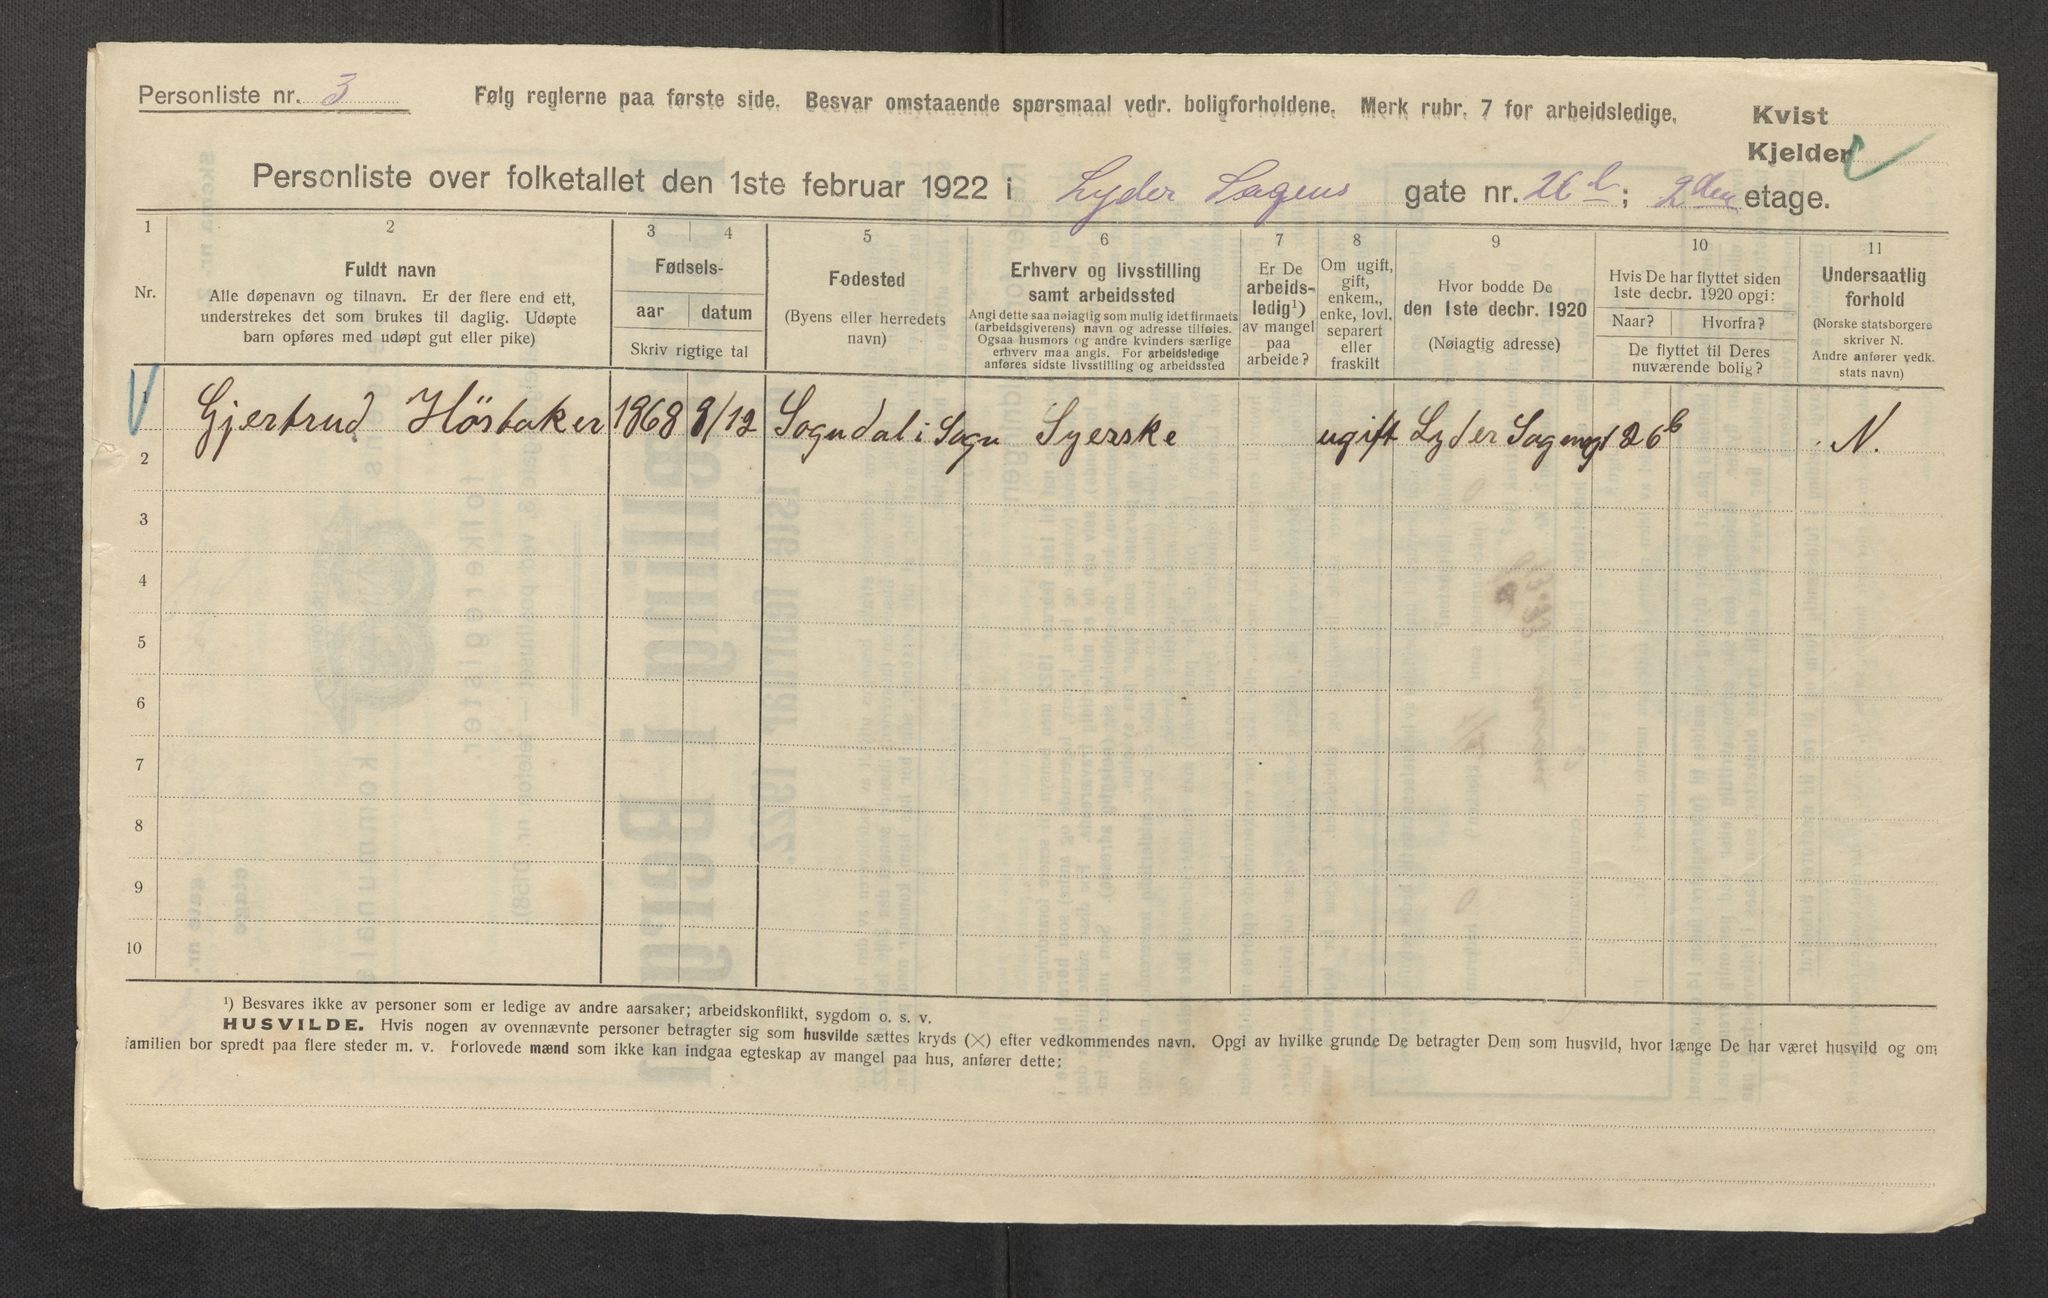 Personliste nr. 3
Følg reglerne paa første side. Besvar omstaaende spørsmaal vedr. boligforholdene. Merk rubr. 7 for arbeidsledige.
Kvist
Kjelder
Personliste over folketallet den 1ste februar 1922 i Lyder Sagens gate nr. 26 b; 2den etage.
1 2 3 4 5 6 7 8 9 10 11
Nr.
Fuldt navn
Alle døpenavn og tilnavn. Er der flere end ett,
understrekes det som brukes til daglig. Udøpte
barn opføres med udøpt gut eller pike)
Fødsels-
aar datum
Skriv rigtige tal
Fødested
(Byens eller herredets
navn)
Erhverv og livsstilling
samt arbeidssted
Angi dette saa nøiagtig som mulig idet firmaets
(arbeidsgiverens) navn og adresse tilføies.
Ogsaa husmors og andre kvinders særlige
erhverv maa angis. For arbeidsledige
anføres sidste livsstilling og arbeidssted
Er De
arbeids-
ledig¹)
av mangel
paa
arbeide?
Om ugift,
gift,
enkem.,
enke, lovl.
separert
eller
fraskilt
Hvor bodde De
den 1ste decbr. 1920
(Nøiagtig adresse)
Hvis De har flyttet siden
1ste decbr. 1920 opgi:
Naar? Hvorfra?
De flyttet til Deres
nuværende bolig?
Undersaatlig
forhold
(Norske statsborgere
skriver N.
Andre anfører vedk.
stats navn)
1 Gjertrud Höstaker 1868 8/12 Sogndal i Sogn Syerske ugift Lyder Sagensgt 26 b N.
2
3
4
5
6
7
8
9
10
¹) Besvares ikke av personer som er ledige av andre aarsaker; arbeidskonflikt, sygdom o. s. v.
HUSVILDE. Hvis nogen av ovennævnte personer betragter sig som husvilde sættes kryds (×) efter vedkommendes navn. Opgi av hvilke grunde De betragter Dem som husvild, hvor længe De har været husvild og om
familien bor spredt paa flere steder m. v. Forlovede mænd som ikke kan indgaa egteskap av mangel paa hus, anfører dette: